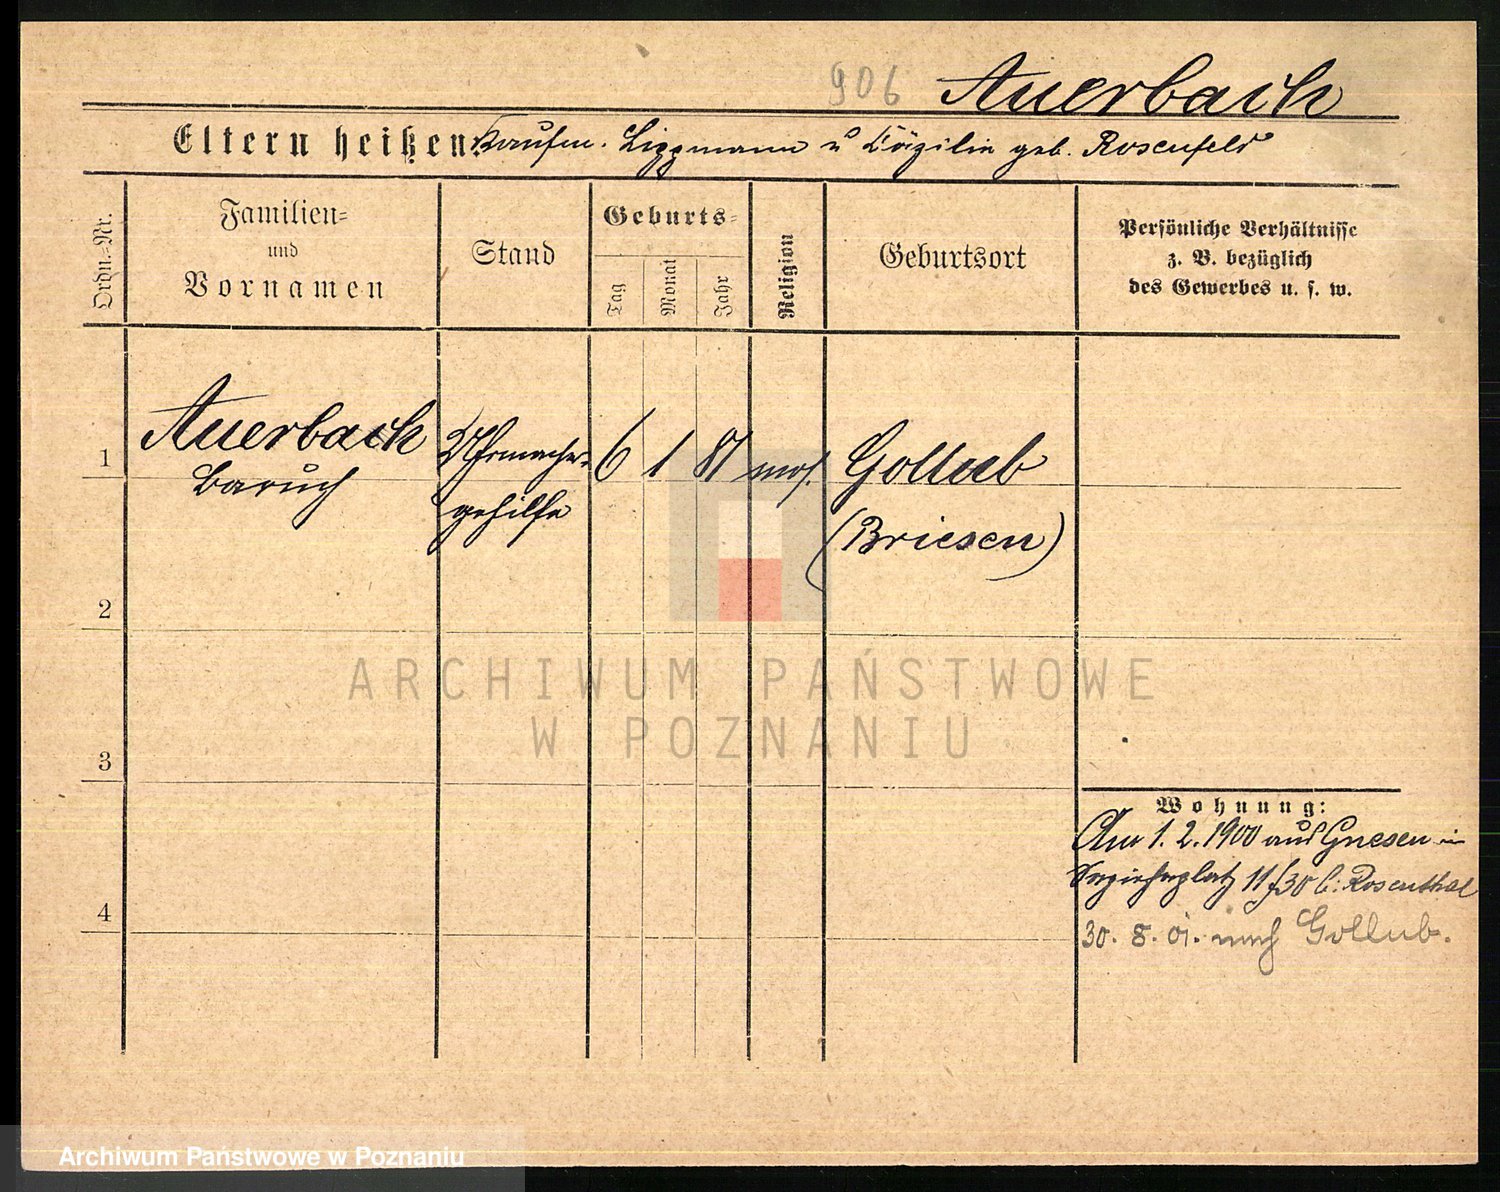 906 Auerbach
Eltern heißen: Kaufm. Lippmann u Cäzilie geb. Rosenfeld
Ordn.-Nr.
Familien-
und
Vornamen
Stand
Geburts-
Tag
Monat
Jahr
Religion
Geburtsort
Persönliche Verhältnisse
z. B. bezüglich
des Gewerbes u. s. w.
1 Auerbach Uhrmacher- 6 1 81 mos. Gollub
Baruch gehilfe (Briesen)
2
3
4
Wohnung:
Am 1. 2. 1900 aus Gnesen in
11/30 b: Rosenthal
30. 8. 01. nach Gollub.
ARCHIWUM PAŃSTWOWE
W POZNANIU
Archiwum Państwowe w Poznaniu